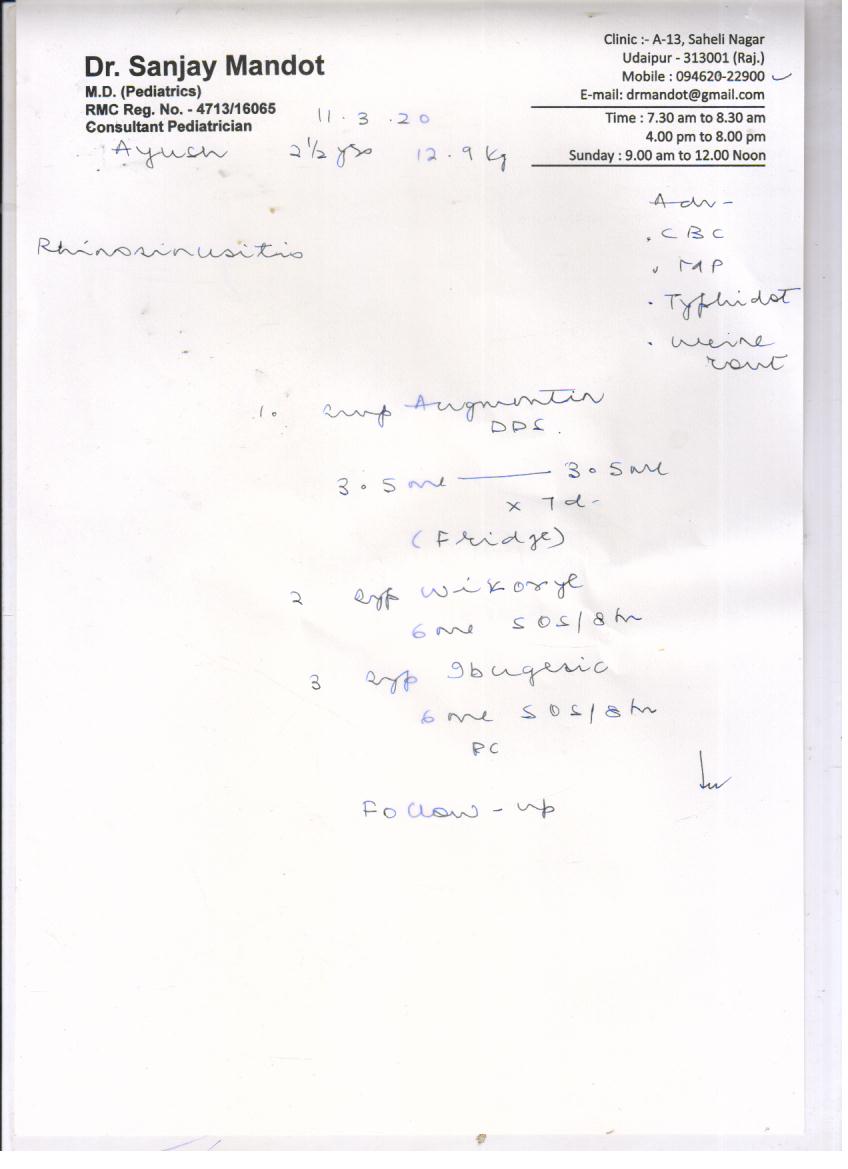 Dr. Sanjay Mandot
M.D. (Pediatrics)
RMC Reg. No. - 4713/16065
Consultant Pediatrician
Clinic :- A-13, Saheli Nagar
Udaipur - 313001 (Raj.)
Mobile : 094620-22900
E-mail: drmandot@gmail.com
Time : 7.30 am to 8.30 am
4.00 pm to 8.00 pm
Sunday : 9.00 am to 12.00 Noon
11.3.20
Ayush 2 1/2 yrs 12.9 kg
Adv -
. CBC
. MP
. Typhidot
. Urine
rout
Rhinosinusitis
1. Syp Augmentin
DDS.
3.5 ml — 3.5 ml
x 7d-
(Fridge)
2 Syp Wikoryl
6 ml SOS/8 hr
3 Syp Ibugesic
6 ml SOS/8 hr
PC
Follow-up